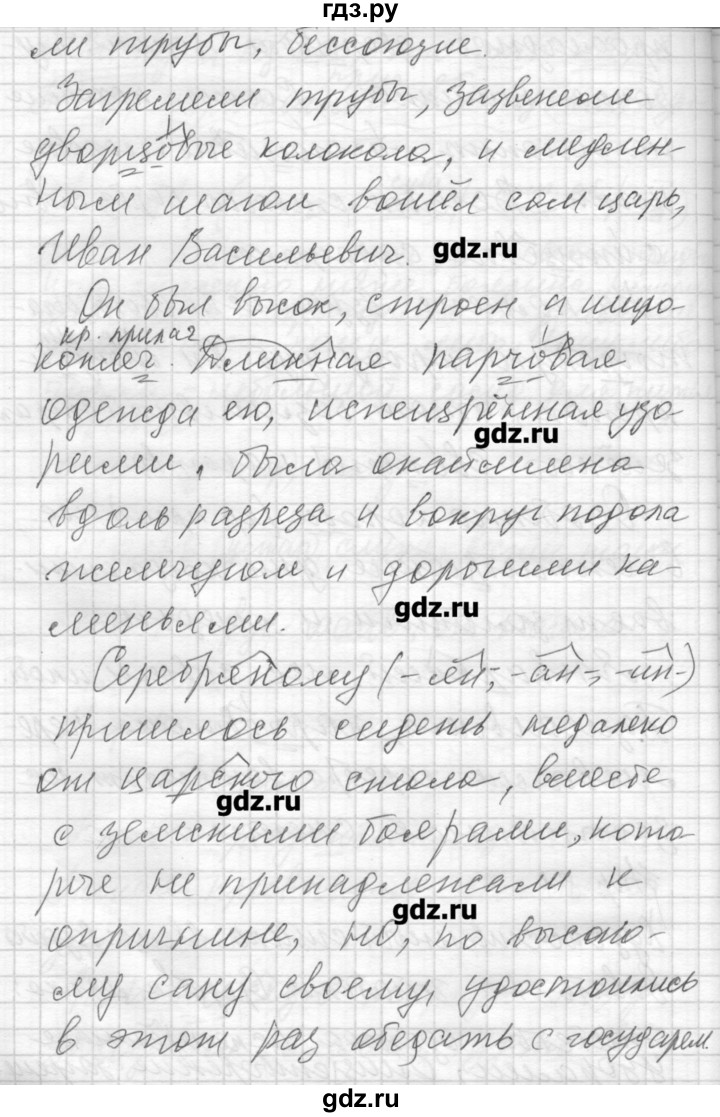 гдз.ру
ли трубы, бессоюзие.
Загремели трубы, зазвенели
дворцовые колокола, и медлен-
ным шагом вошёл сам царь,
Иван Васильевич. gdz.ru
Он был высок, строен и широ-
кр. прилаг
коплеч. Длинная парчовая
одежда его, испещрённая узо-
gdz.ru
рами, была окаймлена
вдоль разреза и вокруг подола
жемчугом и дорогими ка-
gdz.ru
меньями.
Серебряному (-ян-, -ан-, -ин-)
пришлось сидеть недалеко
от царского стола, вместе
gdz.ru
с земскими боярами, кото
рые не принадлежали к
gdz.ru
опричнине, но, по высоко-
му сану своему, удостоились
в этот раз обедать с государем.
gdz.ru